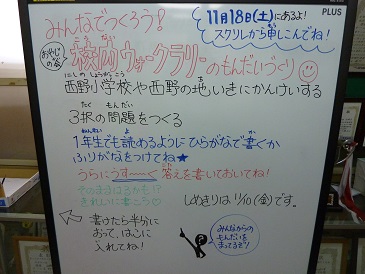 みんなでつくろう!
11月18日(土)にあるよ!
スグリレから申しこんでね!
PLUS
おやじの会
校内ウォークラリーのもんだいづくり
西野小学校や西野の地いきにかんけいする
3択の問題をつくる
1年生でも読めるようにひらがなで書くか
ふりがなをつけてね★
うらにうす〜く答えを書いておいてね!
そのままはるかも!?
きれいに書こう♡
しめきりは11/10(金)です。
書けたら半分に
おって、はこに
入れてね!
みんなからの
もんだいを
まってるぞ!